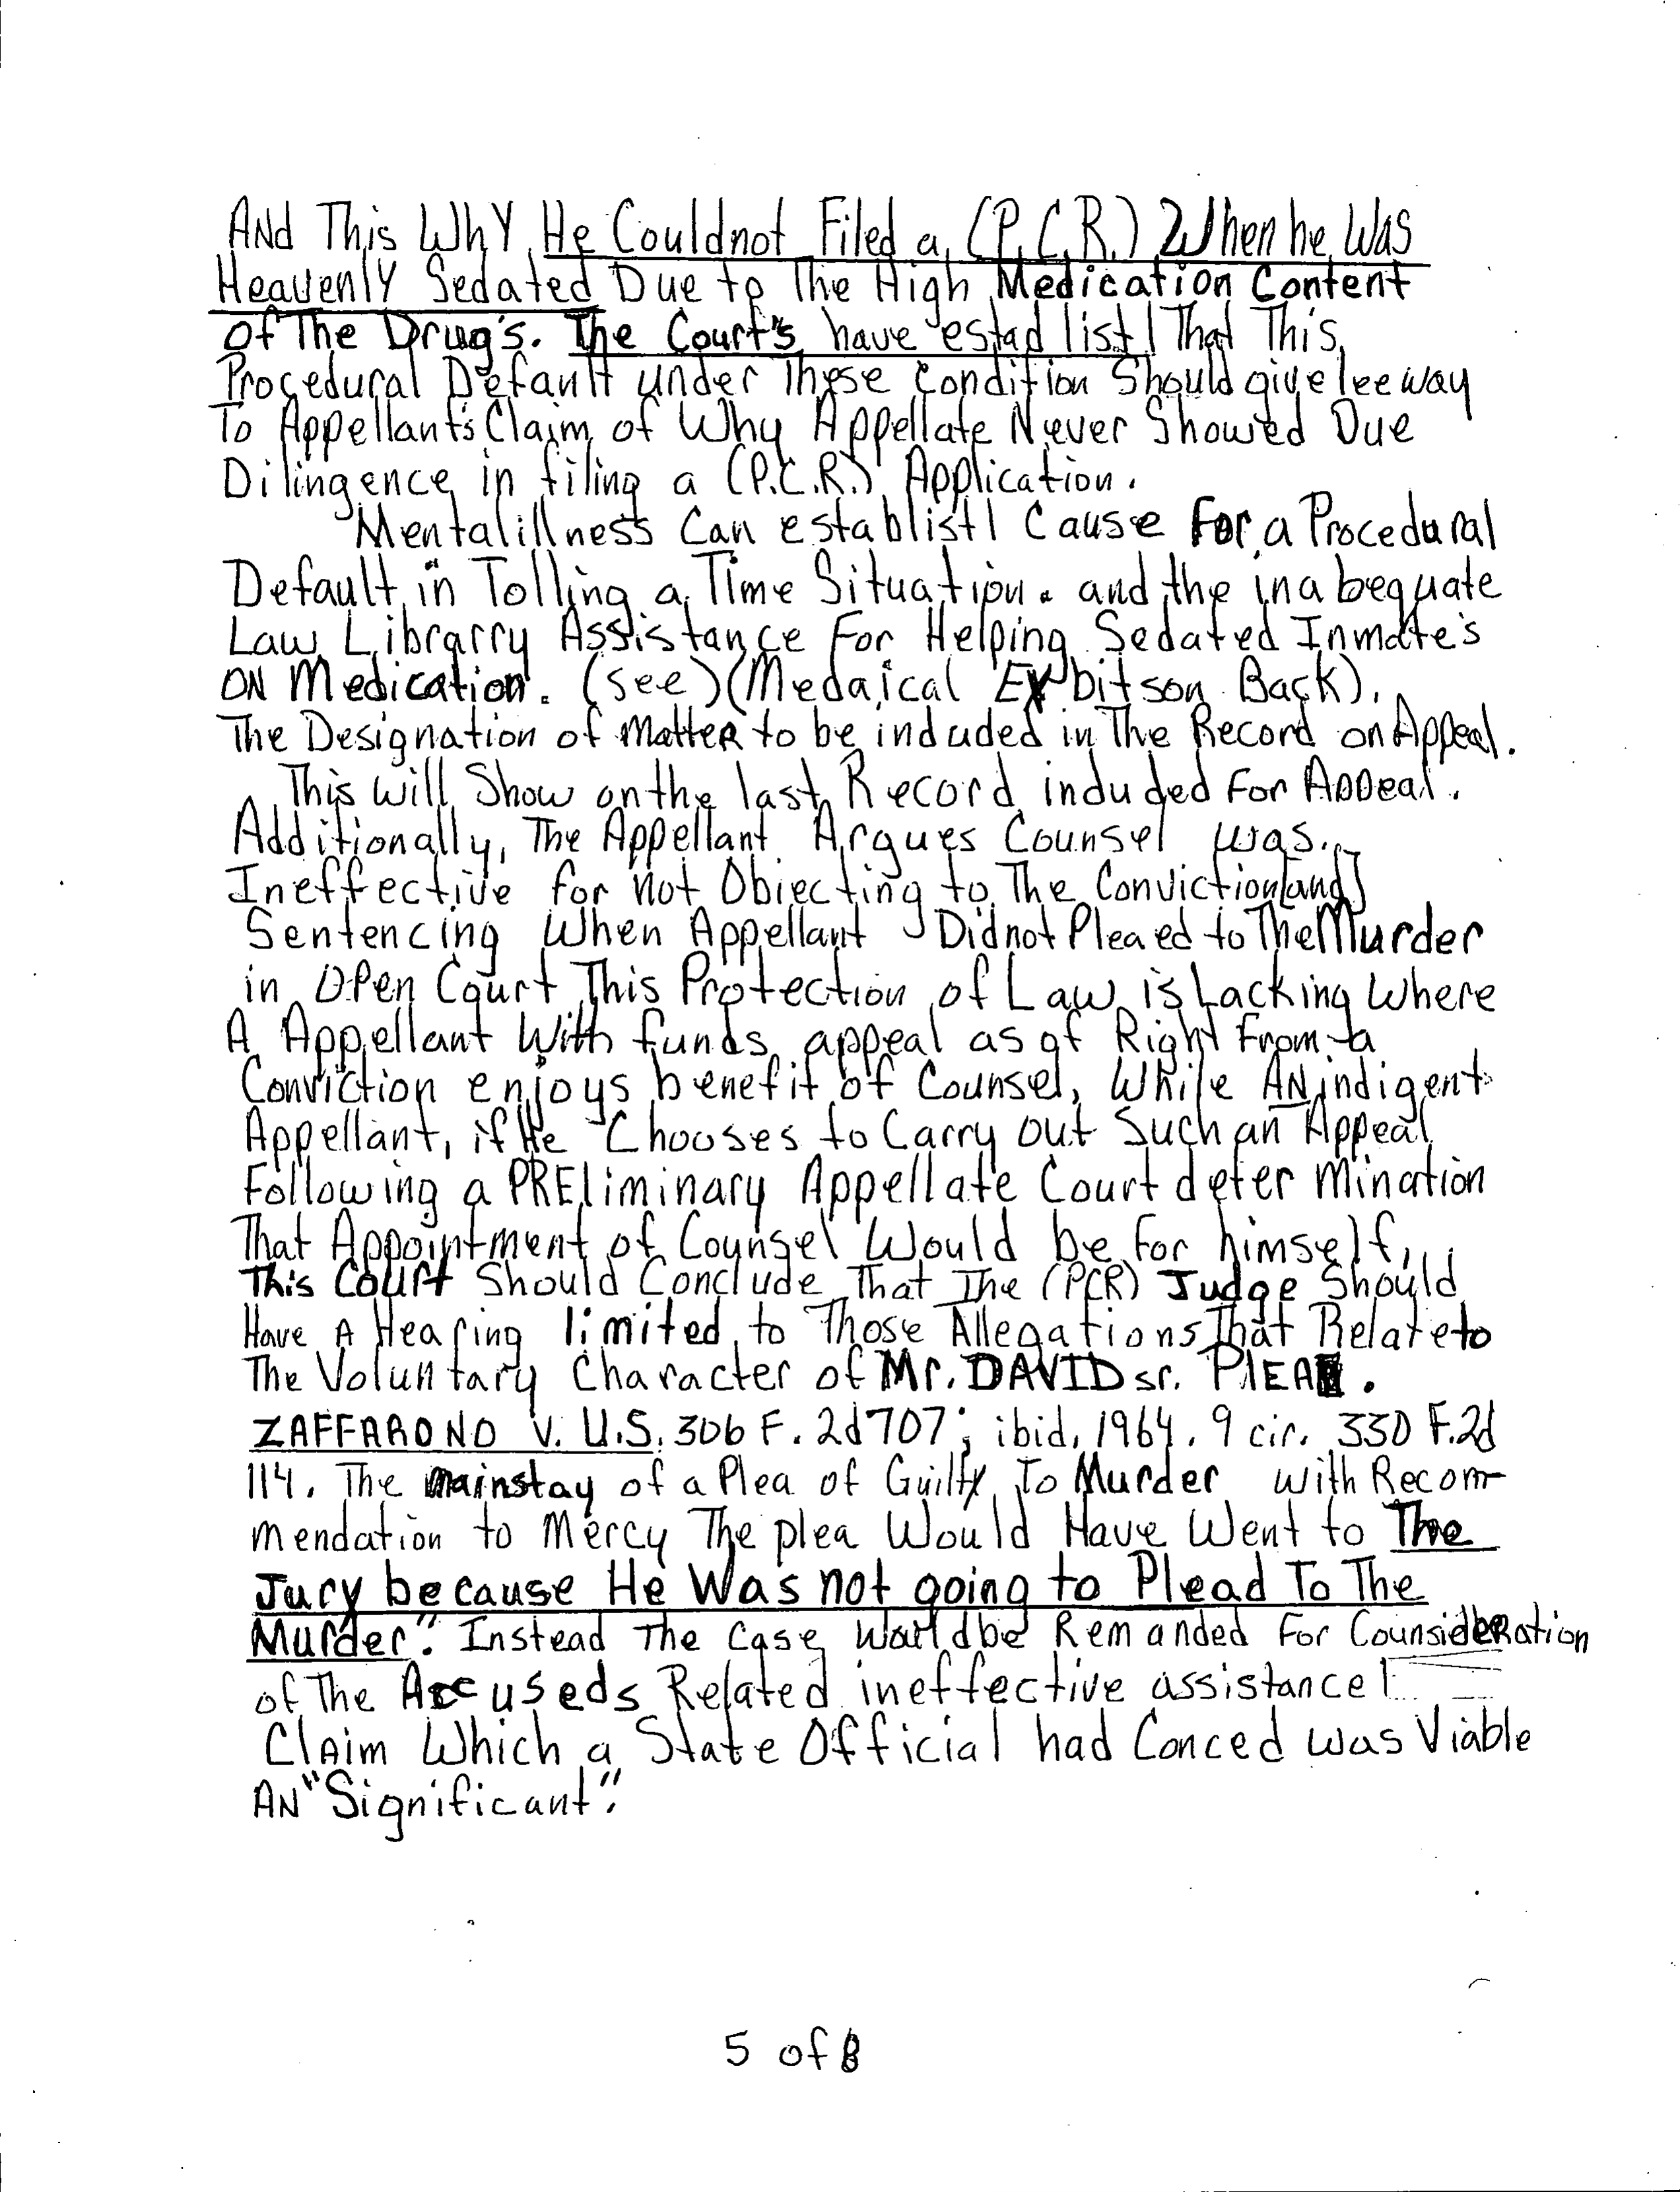 AND This WhY He Couldnot Filed a (P.C.R.) When he Was
Heavenly Sedated Due to The High Medication Content
of The Drug's. The Court's have estad list| That This
Procedural Default under These Condition Should give leeway
To Appellant's Claim of Why Appellate Never Showed Due
Dilingence in filing a (P.C.R.) Application.
Mentalillness Can establist| Cause For a Procedural
Default in Tolling a Time Situation. and the inabequate
Law Librarry Assistance For Helping Sedated Inmate's
ON Medication. (see)(Medaical Exbitson Back).
The Designation of Matter to be induded in The Record on Appeal.
This will Show on the last Record induded For Appeal.
Additionally, The Appellant Argues Counsel was
Ineffective for Not Objecting to The Conviction(and)
Sentencing When Appellant Didnot Pleaed to The Murder
in Open Court This Protection of Law is Lacking Where
A Appellant With funds appeal as of Right From a
Conviction enjoys benefit of Counsel, While AN indigent
Appellant, if He Chooses to Carry out Such an Appeal
Following a PREliminary Appellate Court deter mination
That Appointment of Counsel Would be for himself,
This Court Should Conclude That The (PCR) Judge Should
Have A Hearing limited to Those Allegations That Relate to
The Voluntary Character of Mr. DAVID sr. PlEA.
ZAFFARONO V. U.S. 306 F. 2d 707; ibid, 1964. 9 cir. 330 F.2d
114. The mainstay of a Plea of Guilty To Murder with Recom-
mendation to Mercy The plea Would Have Went to The
Jury because He Was not going to Plead To The
Murder." Instead The Case Would be Remanded For Counsideration
of The Accuseds Related ineffective assistance
Claim Which a State Official had Conced was Viable
AN "Significant."
5 of 8